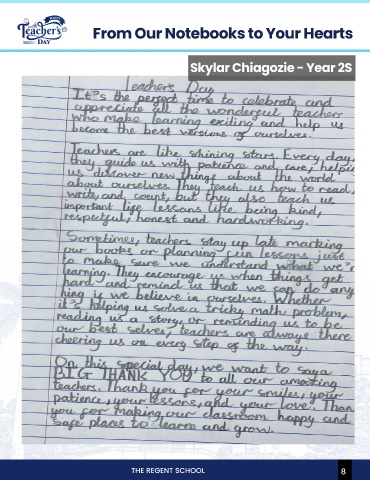 Teacher's
DAY
From Our Notebooks to Your Hearts
Skylar Chiagozie - Year 2S
Teachers Day
It's the perfect time to celebrate and
appreciate all the wonderful teachers
who make learning exciting and help us
become the best versions of ourselves.
Teachers are like shining stars. Every day,
they guide us with patience and care, helping
us discover new things about the world
about ourselves. They teach us how to read,
write, and count, but they also teach us
important life lessons like being kind,
respectful, honest and hardworking.
Sometimes, teachers stay up late marking
our books or planning fun lessons just
to make sure we understand what we'r
learning. They encourage us when things get
hard and remind us that we can do any
thing if we believe in ourselves. Whether
it's helping us solve a tricky math problem,
reading us a story, or reminding us to be
our best selves, teachers are always there
cheering us on every step of the way.
On this special day, we want to say a
BIG THANK YOU to all our amazing
teachers. Thank you for your smiles, your
patience, your lessons, and your love. Than
you for making our classroom happy and
safe places to learn and grow.
THE REGENT SCHOOL
8